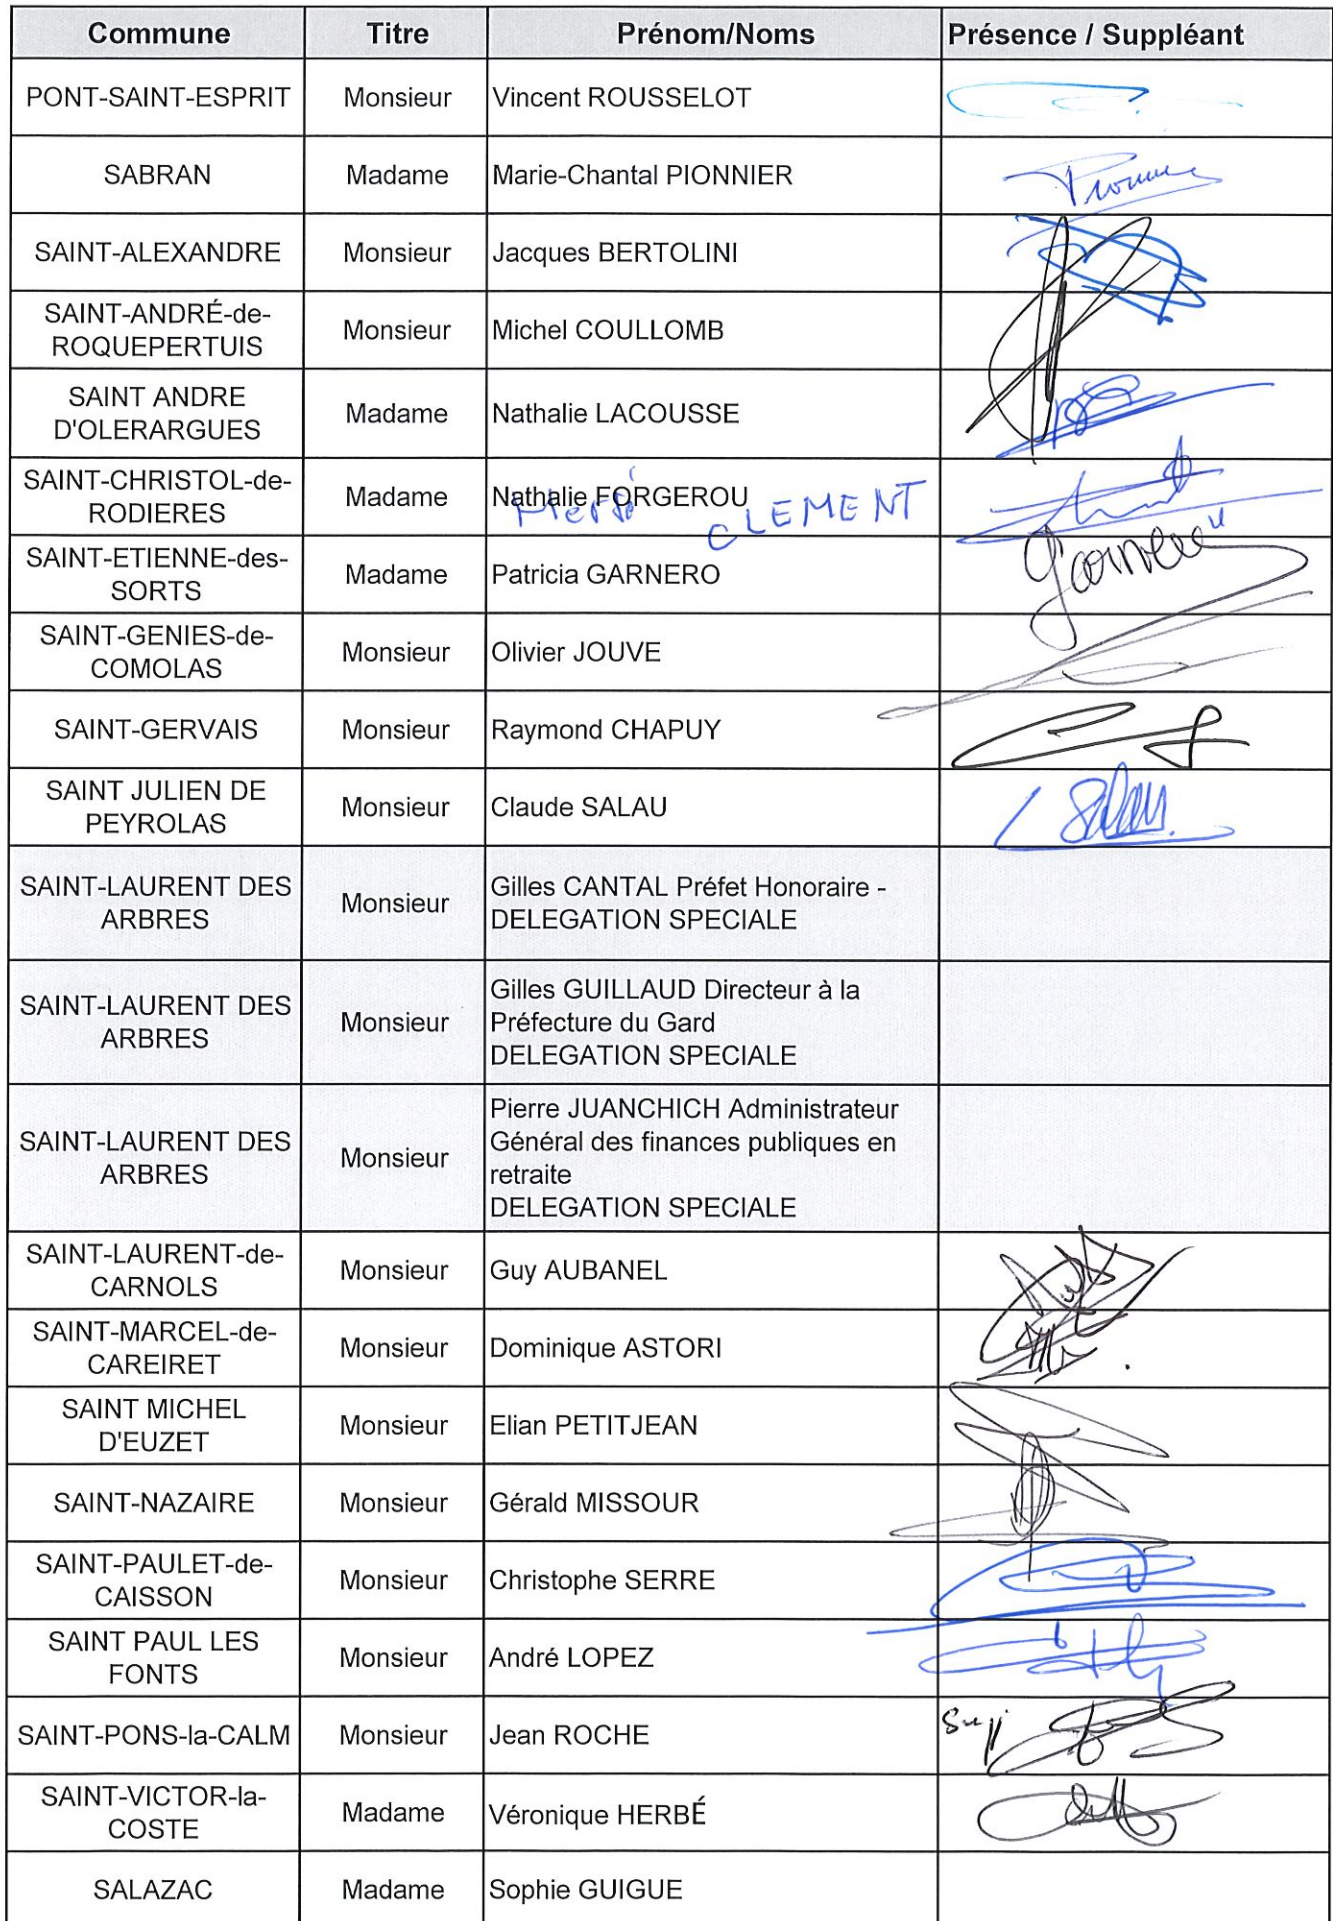 Commune Titre Prénom/Noms Présence / Suppléant
PONT-SAINT-ESPRIT Monsieur Vincent ROUSSELOT
SABRAN Madame Marie-Chantal PIONNIER
SAINT-ALEXANDRE Monsieur Jacques BERTOLINI
SAINT-ANDRÉ-de-
ROQUEPERTUIS Monsieur Michel COULLOMB
SAINT ANDRE
D'OLERARGUES Madame Nathalie LACOUSSE
SAINT-CHRISTOL-de-
RODIERES Madame Nathalie FORGEROU
CLEMENT
SAINT-ETIENNE-des-
SORTS Madame Patricia GARNERO
SAINT-GENIES-de-
COMOLAS Monsieur Olivier JOUVE
SAINT-GERVAIS Monsieur Raymond CHAPUY
SAINT JULIEN DE
PEYROLAS Monsieur Claude SALAU
SAINT-LAURENT DES
ARBRES Monsieur Gilles CANTAL Préfet Honoraire -
DELEGATION SPECIALE
SAINT-LAURENT DES
ARBRES Monsieur Gilles GUILLAUD Directeur à la
Préfecture du Gard
DELEGATION SPECIALE
SAINT-LAURENT DES
ARBRES Monsieur Pierre JUANCHICH Administrateur
Général des finances publiques en
retraite
DELEGATION SPECIALE
SAINT-LAURENT-de-
CARNOLS Monsieur Guy AUBANEL
SAINT-MARCEL-de-
CAREIRET Monsieur Dominique ASTORI
SAINT MICHEL
D'EUZET Monsieur Elian PETITJEAN
SAINT-NAZAIRE Monsieur Gérald MISSOUR
SAINT-PAULET-de-
CAISSON Monsieur Christophe SERRE
SAINT PAUL LES
FONTS Monsieur André LOPEZ
SAINT-PONS-la-CALM Monsieur Jean ROCHE
SAINT-VICTOR-la-
COSTE Madame Véronique HERBÉ
SALAZAC Madame Sophie GUIGUE